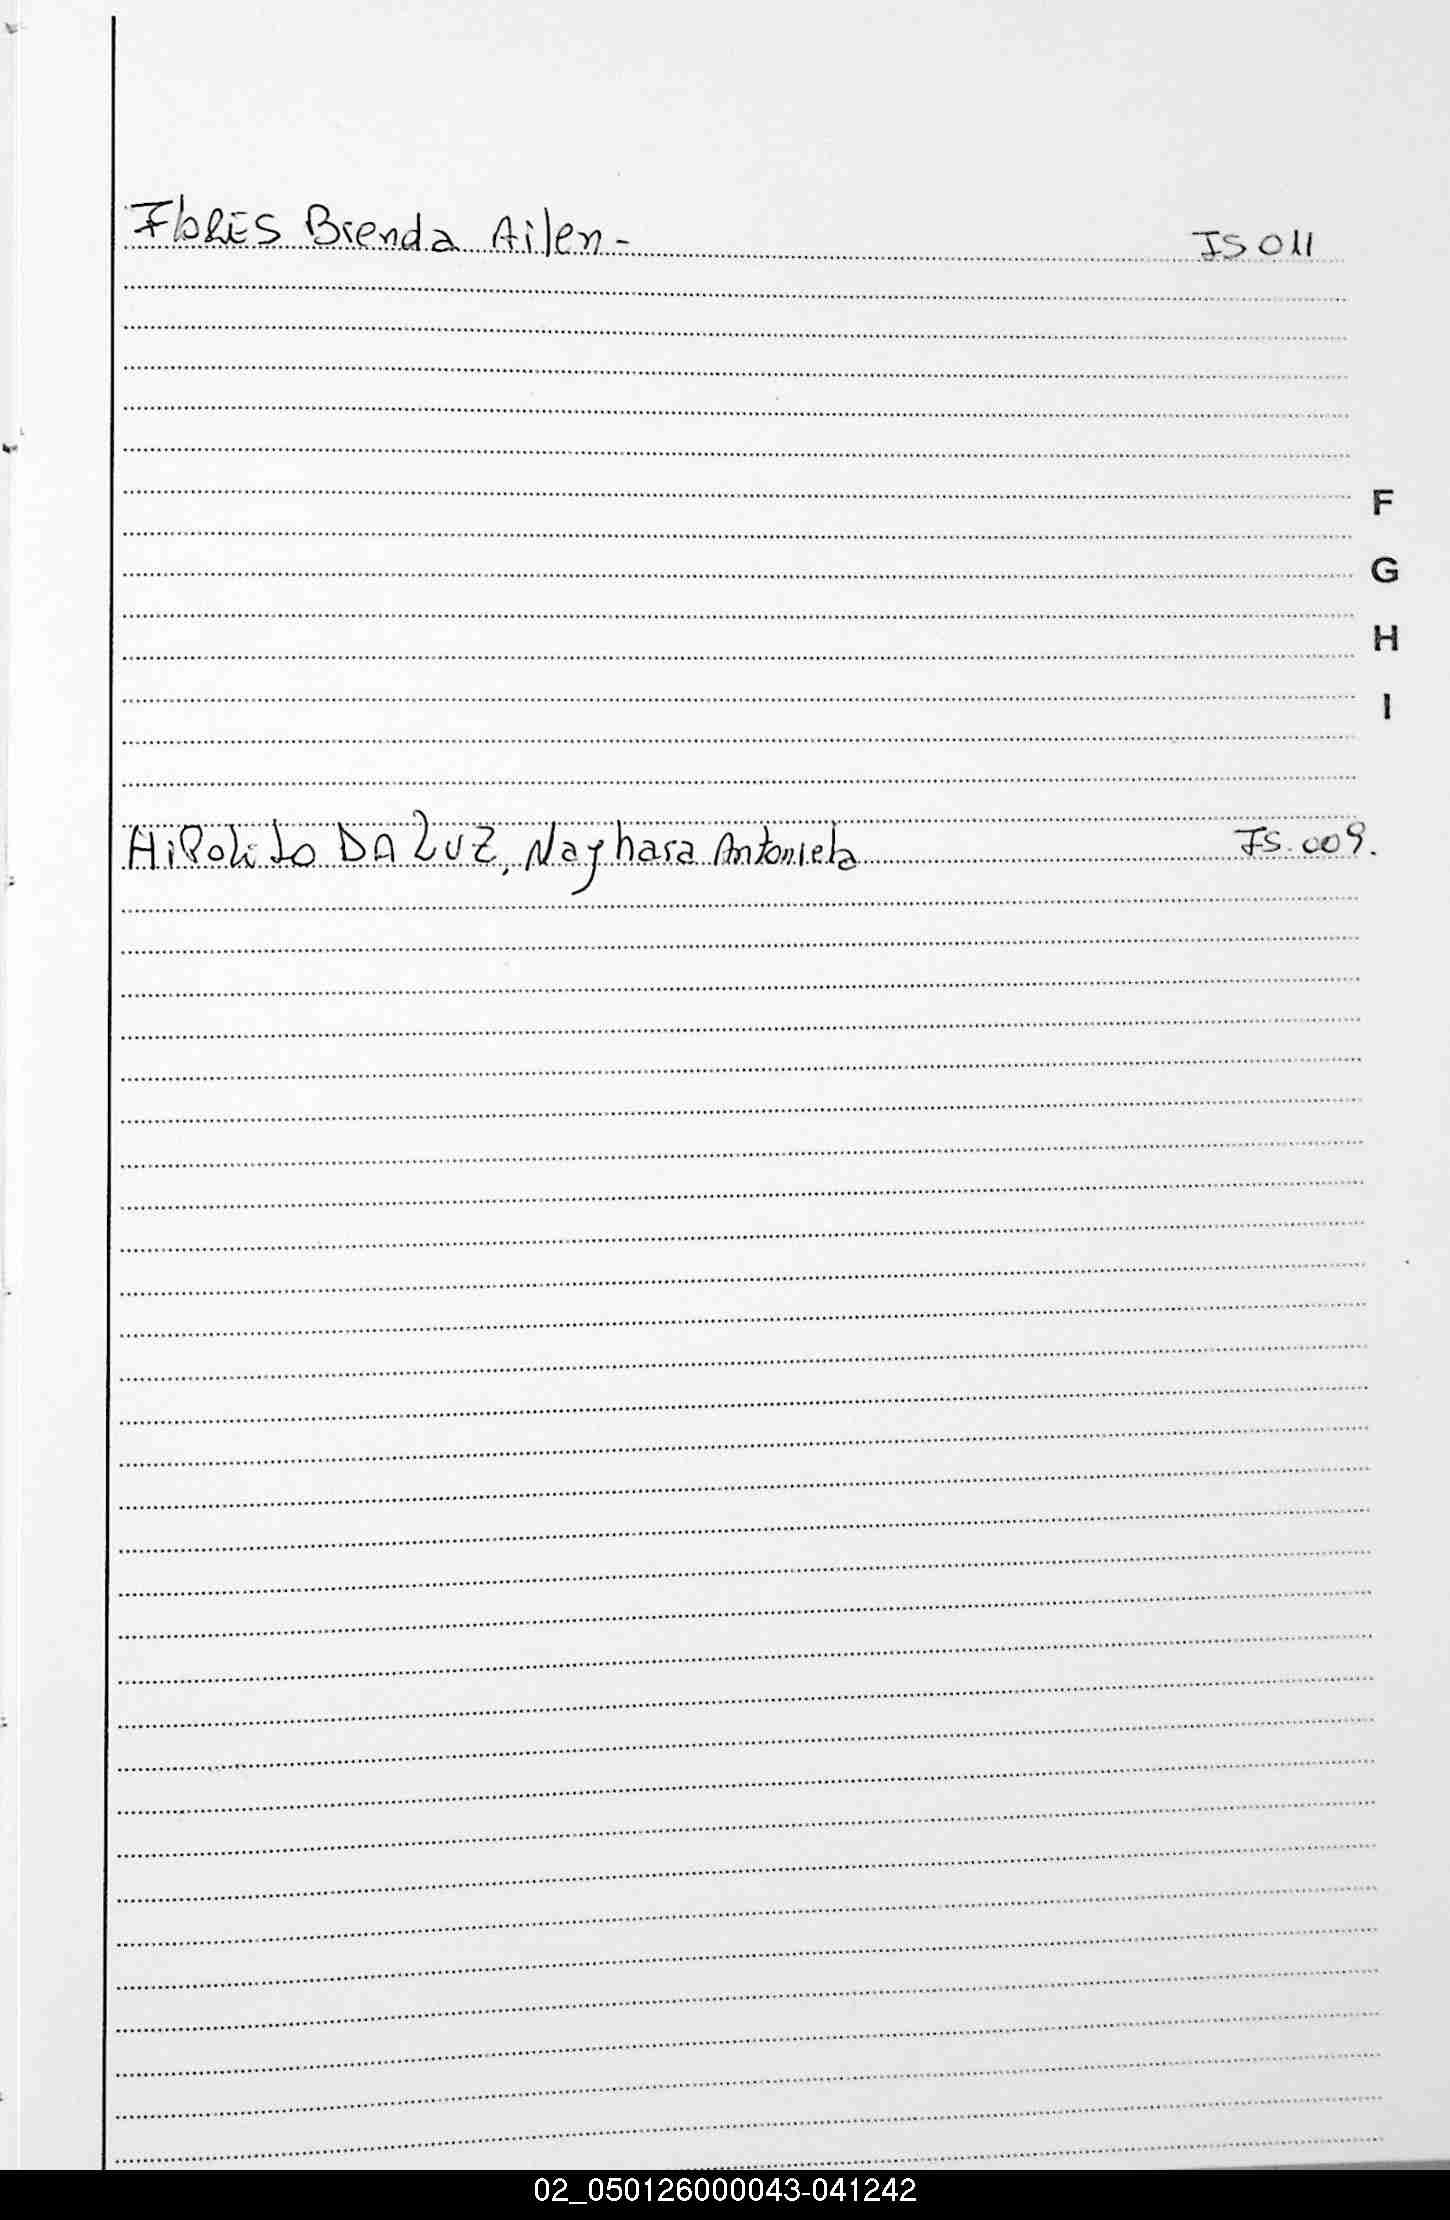 FloRES Brenda Ailen - FS 011
F
G
H
I
HiPoLito DA LUZ, Nayhara Antonieta FS. 009.
02_050126000043-041242